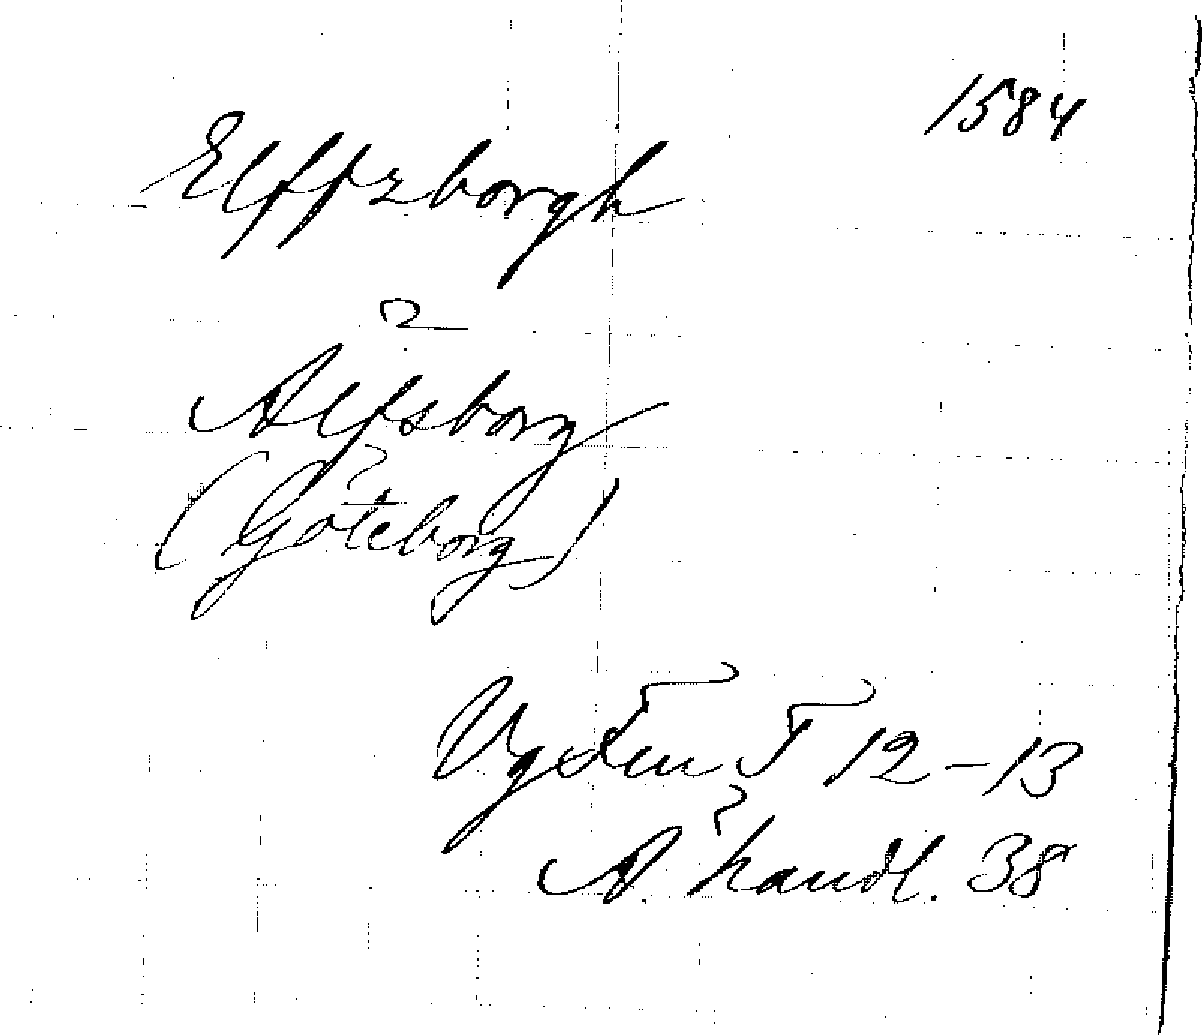 1584
Elffzborgh
Älfsborg
(Göteborg)
Vgsten T 12-13
A. handl. 38